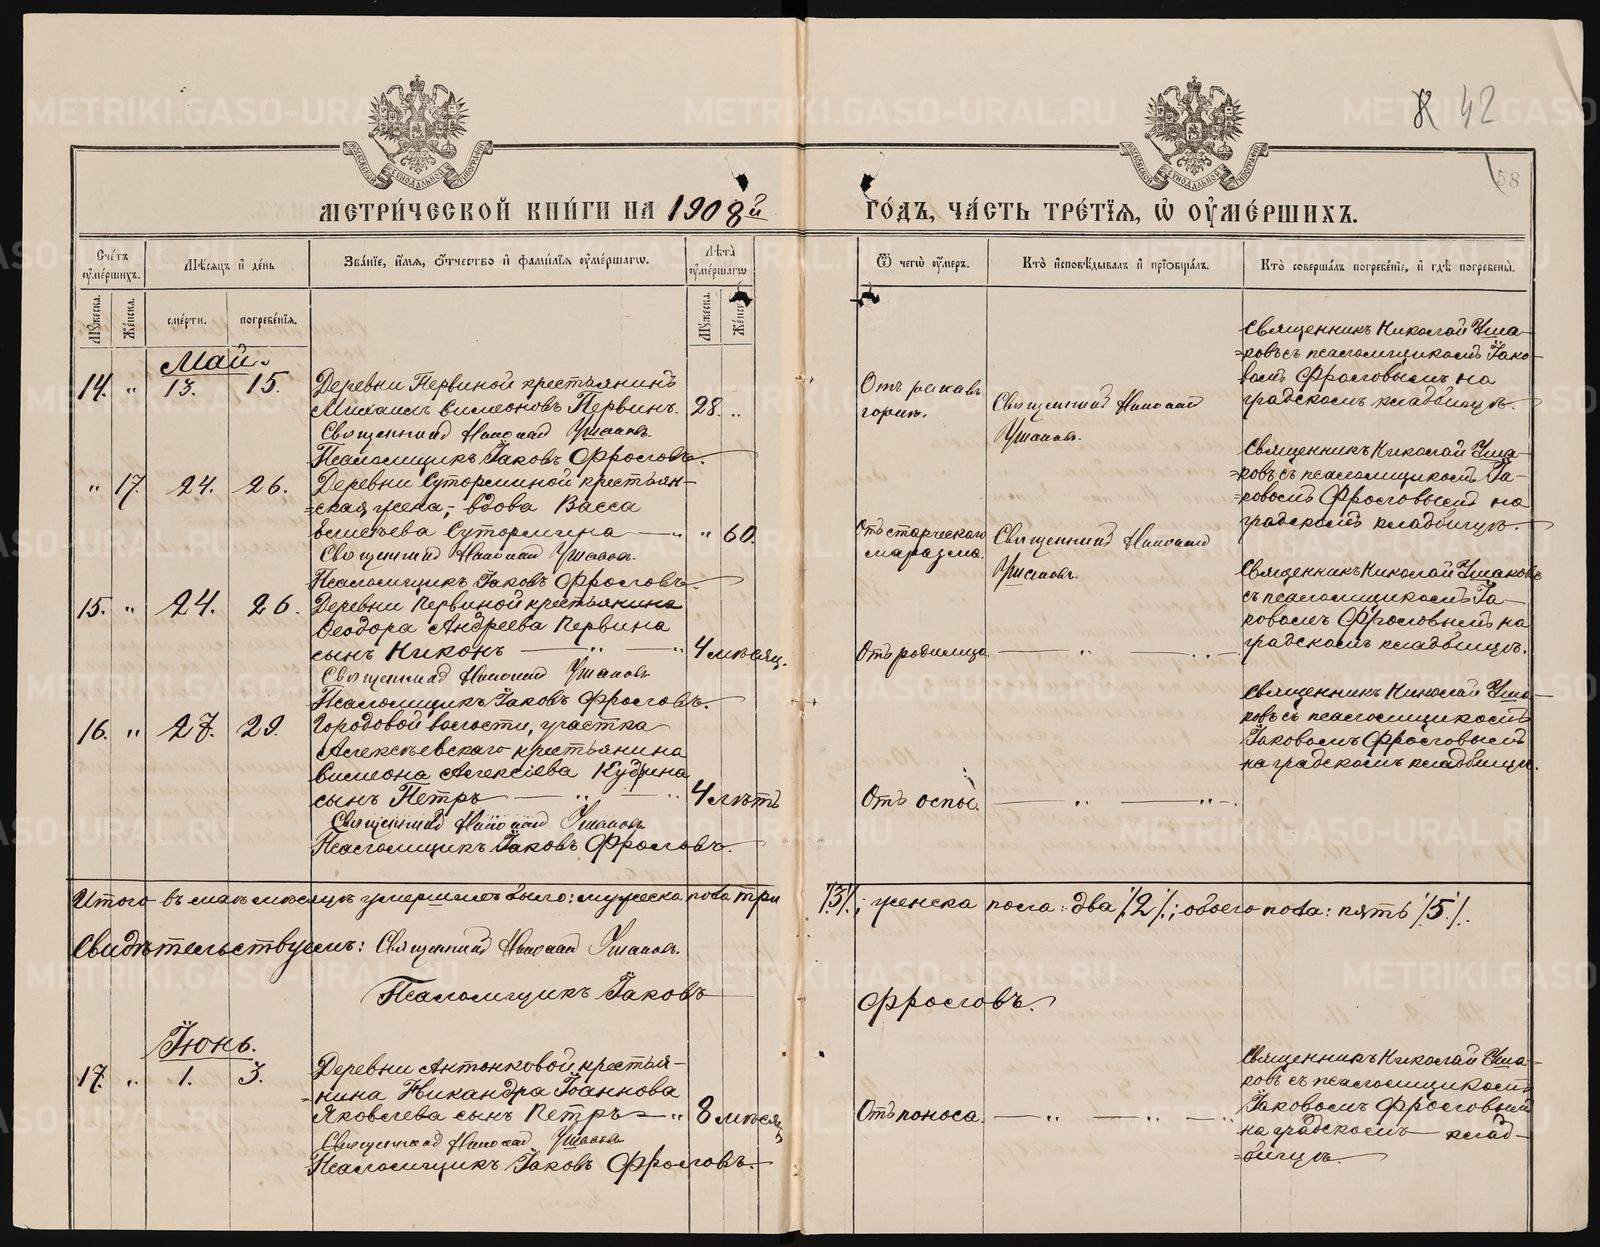 8 42
58
МЕТРИ́ЧЕСКОЙ КНИ́ГИ НА 1908й ГО́ДЪ, ЧА́СТЬ ТРЕ́ТЇѦ, Ѡ҆ ОУ҆МЕ́РШИХЪ.
Сче́тъ оу҆ме́ршихъ.
Мѣ́сяцъ и҆ де́нь
Зва́нїе, и҆́мя, о҆́тчество и҆ фами́лїя оу҆ме́ршагѡ.
Лѣ́та оу҆ме́ршагѡ
Ѿ чегѡ̀ оу҆́меръ.
Кто̀ и҆сповѣ́дывалъ и҆ прїѡбща́лъ.
Кто̀ соверша́лъ погребе́нїе, и҆ гдѣ̀ погребены̀.
Мꙋ́жеска.
Же́нска.
сме́рти.
погребе́нїя.
Мꙋ́жеска.
Же́нска.
Май.
14. " 13. 15.
Деревни Первиной крестьянинъ
Михаилъ Симеоновъ Первинъ. 28. "
Священникъ Николай Ушаковъ.
Псаломщикъ Іаковъ Фроловъ.
Отъ
горла.
Священникъ Николай
Ушаковъ.
Священникъ Николай Уша-
=ковъ съ псаломщикомъ Іако-
вомъ Фроловымъ на
градскомъ кладбищѣ.
" 17. 24. 26.
Деревни Суторминой крестьян-
=ская жена, - вдова Васса
Сутормина — " " 60.
Священникъ Николай Ушаковъ.
Псаломщикъ Іаковъ Фроловъ.
Отъ старческаго
маразма.
Священникъ Николай
Ушаковъ.
Священникъ Николай Уша-
=ковъ съ псаломщикомъ Іа-
=ковомъ Фроловымъ на
градскомъ кладбищѣ.
15. " 24. 26.
Деревни Первиной крестьянина
Ѳеодора Андреева Первина
сынъ Никонъ — " — " 4 мѣсяц.
Священникъ Николай Ушаковъ
Псаломщикъ Іаковъ Фроловъ.
Отъ родимца. — " — " —
Священникъ Николай Ушаковъ
съ псаломщикомъ Іа-
ковомъ Фроловымъ на
градскомъ кладбищѣ.
16. " 27. 29.
Городовой волости, участка
Алексѣевскаго крестьянина
Симеона Алексіева Кудрина
сынъ Петръ — " — " 4 лѣтъ
Священникъ Николай Ушаковъ
Псаломщикъ Іаковъ Фроловъ.
Отъ оспы. — " — " —.
Священникъ Николай Уша-
ковъ съ псаломщикомъ
Іаковомъ Фроловымъ
на градскомъ кладбищѣ.
Итого въ маѣ мѣсяцѣ умершихъ было: мужеска пола три /3/; женска пола: два /2/; обоего пола: пять /5/.
Свидѣтельствуемъ: Священникъ Николай Ушаковъ.
Псаломщикъ Іаковъ Фроловъ.
Іюнь.
17. " 1. 3.
Деревни Антонковой крестья-
=нина Никандра Іоаннова
Яковлева сынъ Петръ — " 8 мѣсяц.
Священникъ Николай Ушаковъ
Псаломщикъ Іаковъ Фроловъ.
Отъ поноса. — " — " — "
Священникъ Николай Уша-
ковъ съ псаломщикомъ
Іаковомъ Фроловымъ
на градскомъ клад-
=бищѣ.
METRIKI.GASO-URAL.RU